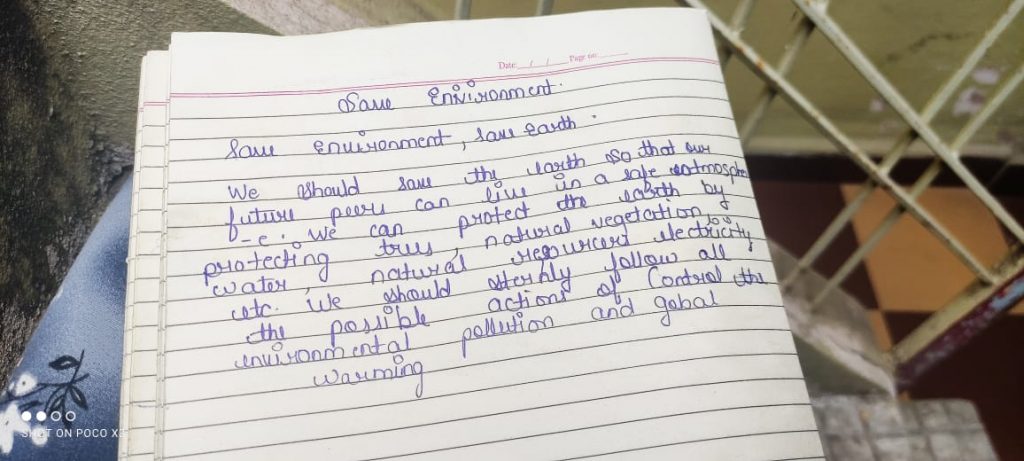 Date: __/__/__ Page no: ______
Save Environment.
Save Environment, save earth.
We should save the earth so that our
future peers can live in a safe atmospher
-e. We can protect the earth by
protecting trees, natural vegetation,
water, natural resources, electricity
etc. We should strictly follow all
the possible actions of Control the
environmental pollution and gobal
warming
SHOT ON POCO X3